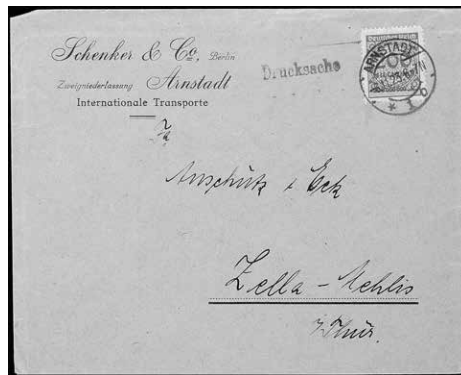 Schenker & Co., Berlin
Zweigniederlassung Arnstadt
Internationale Transporte
Drucksache
Deutsches Reich
ARNSTADT
Fa
Anschütz & Eck
Zella-Mehlis
i. Thür.